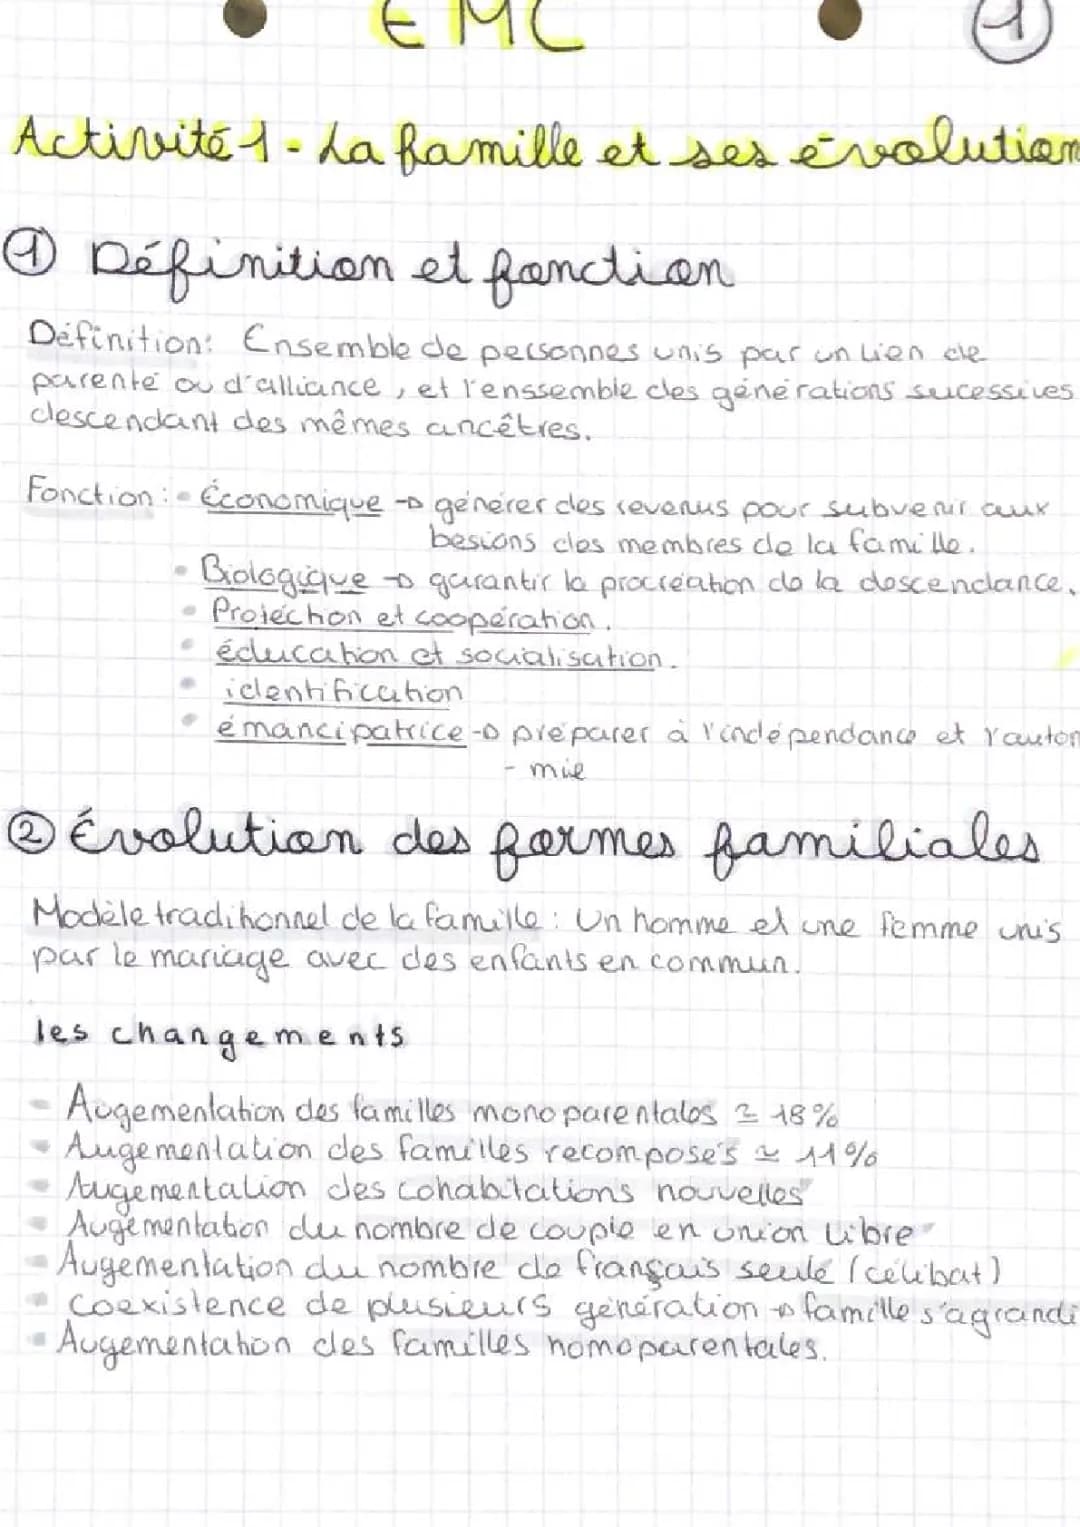 EMC
1
Activité 1 - La famille et ses évolution
① Définition et fonction
Définition: Ensemble de personnes unis par un lien de
parenté ou d'alliance, et l'enssemble des générations sucessives
descendant des mêmes ancêtres.
Fonction: • Économique → générer des revenus pour subvenir aux
besions des membres de la famille.
• Biologique → garantir la procréation de la descendance.
• Protection et coopération.
• éducation et socialisation.
• identification
• émancipatrice → préparer à l'indépendance et l'auton
- mie
② Évolution des formes familiales
Modèle traditionnel de la famille: Un homme et une femme unis
par le mariage avec des enfants en commun.
les changements
- Augementation des familles monoparentales ≃ 18%
- Augementation des familles recomposés ≃ 11%
- Augementation des cohabitations nouvelles
- Augementation du nombre de couple en union libre
- Augementation du nombre de français seulé (célibat)
- Coexistence de plusieurs génération → famille s'agrandi
- Augementation des familles homoparentales.